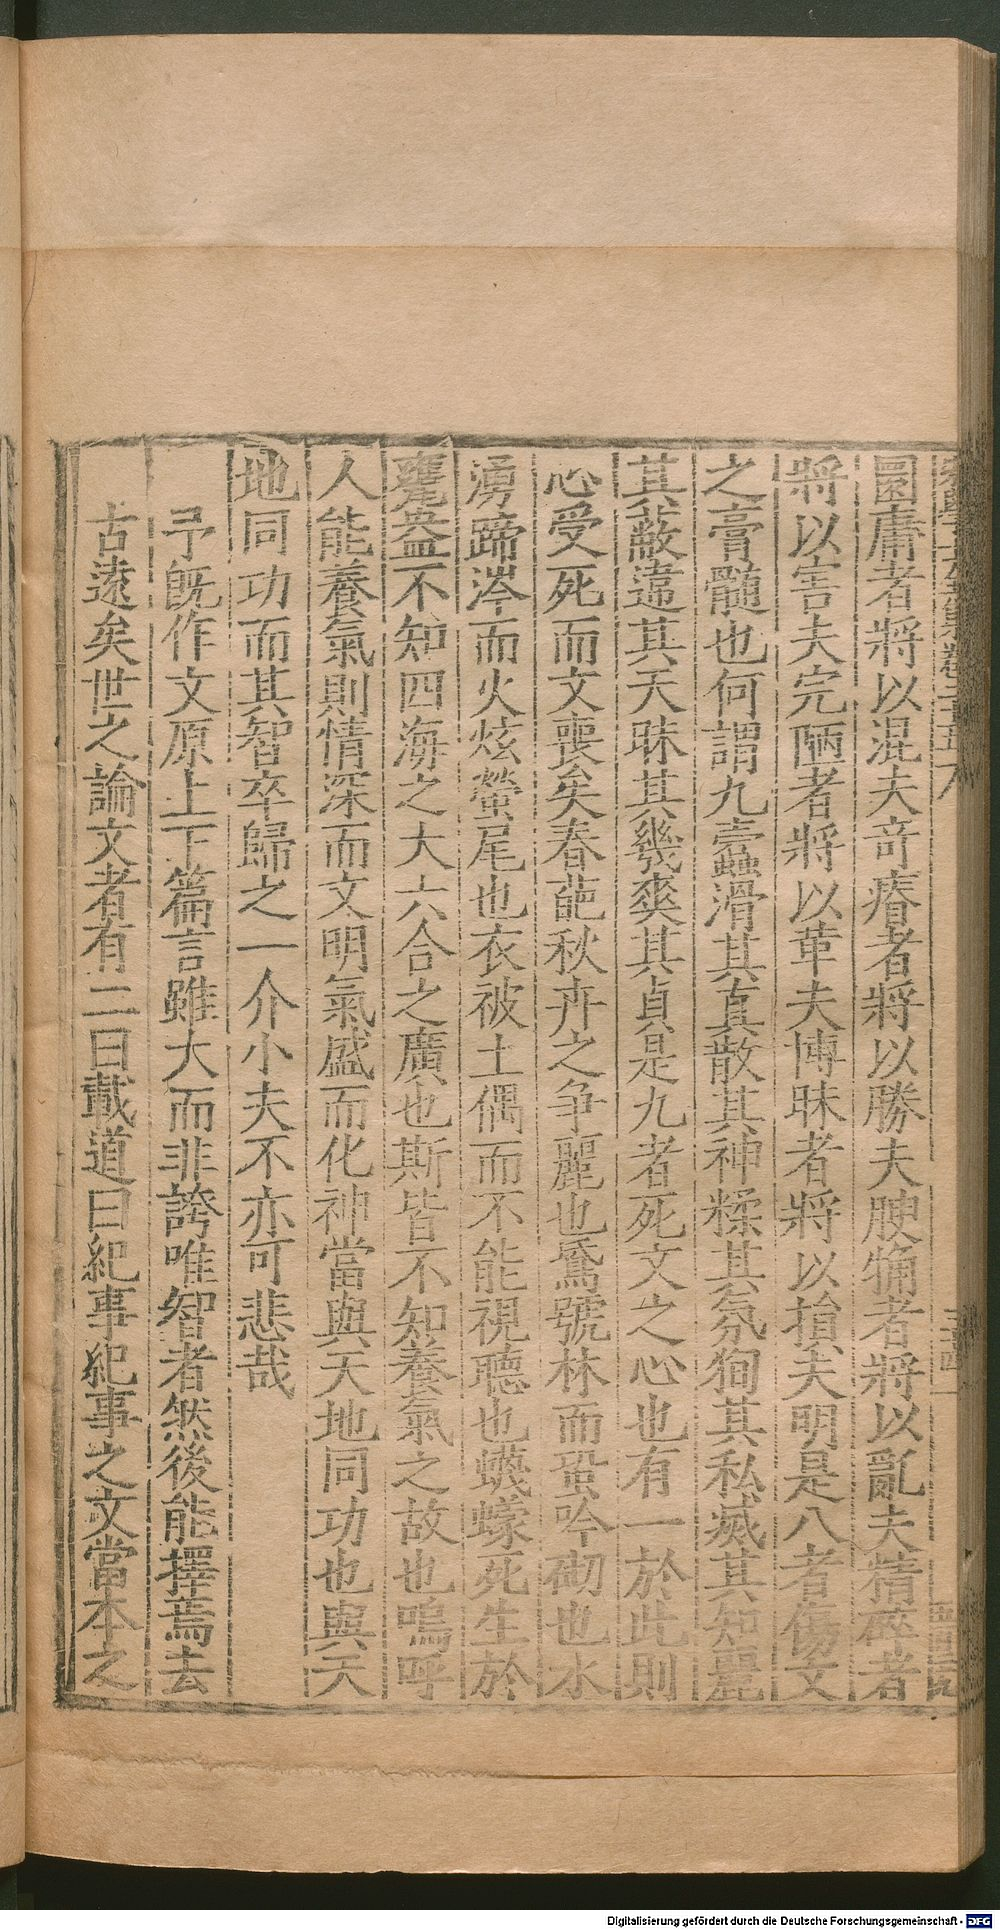 圓庸者將以混夫竒瘠者將以勝夫腴觕者將以亂夫精碎者
將以害夫完陋者將以革夫博昧者將以損夫明是八者傷文
之膏髓也何謂九蠹滑其真散其神糅其氛徇其私滅其知麗
其蔽違其天昧其幾爽其貞是九者死文之心也有一於此則
心受死而文喪矣春葩秋卉之争麗也鴌號林而蛩吟砌也水
湧蹄涔而火炫螢尾也衣被土偶而不能視聽也蠛蠓死生於
甕盎不知四海之大六合之廣也斯皆不知養氣之故也嗚呼
人能養氣則情深而文明氣盛而化神當與天地同功也與天
地同功而其智卒歸之一介小夫不亦可悲哉
予旣作文原上下篇言雖大而非誇唯智者然後能擇焉去
古遠矣世之論文者有二曰載道曰紀事紀事之文當本之
Digitalisierung gefördert durch die Deutsche Forschungsgemeinschaft - DFG